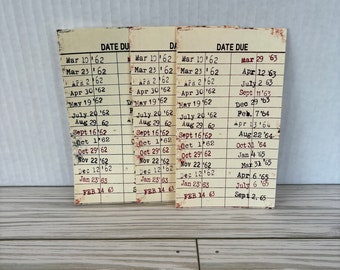 DATE DUE
DATE DUE
DATE DUE
Mar 10 '62
Mar 23 '62
Apr 2 '62
Apr 30 '62
May 19 '62
July 20 '62
Aug 29 62
Sept 16 '62
Oct 1 '62
Oct 29 '62
Nov 22 '62
Dec 12 '62
Jan 23 '63
FEB 14 '63
Mar 10 '62
Mar 23 '62
Apr 2 '62
Apr 30 '62
May 19 '62
July 20 '62
Aug 29 62
Sept 16 '62
Oct 1 '62
Oct 29 '62
Nov 22 '62
Dec 12 '62
Jan 23 '63
FEB 14 '63
Mar 10 '62 Mar 29 '63
Mar 23 '62 Apr 12 '63
Apr 2 '62 July 2 63
Apr 30 '62 Sept 11 '63
May 19 '62 Dec 29 '63
July 20 '62 Feb. 7 '64
Aug 29 62 Apr 23 '64
Sept 16 '62 Aug 22 '64
Oct 1 '62 Oct 31 '64
Oct 29 '62 Jan 4 '65
Nov 22 '62 Mar 31 '65
Dec 12 '62 Apr 6 '65
Jan 23 '63 July 6 '65
FEB 14 '63 Sept 2, 65